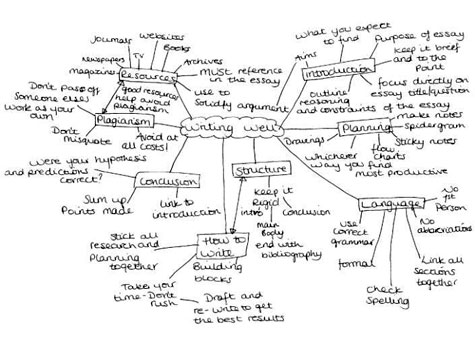 journals
websites
Books
TV
Newspapers
magazines
Resources
Archives
MUST reference
in the essay
use to
Solidify argument
good resources
help avoid
plagiarism
what you expect
to find
Aims
Purpose of essay
keep it brief
and to the
Point
introduction
outline
reasoning
and constraints of the essay
focus directly on
essay title/question
Don't pass off
someone elses
work as your
own!
Plagiarism
Don't
misquote
Avoid at
all costs!
writing well
Planning
make notes
Spidergram
Sticky notes
flow
charts
Drawings
whichever
way you find
most productive
were your hypothesis
and predictions
correct?
Conclusion
Sum up
Points made
Link to
introduction
Structure
keep it
Rigid
intro
main
Body
conclusion
end with
bibliography
Language
No
1st
Person
No
abbreviations
use
correct
grammar
formal
Check
Spelling
Link all
sections
together
How to
write
Stick all
research and
Planning
together
Building
blocks
Takes your
time-Don't
rush
Draft and
re-write to get
the best results